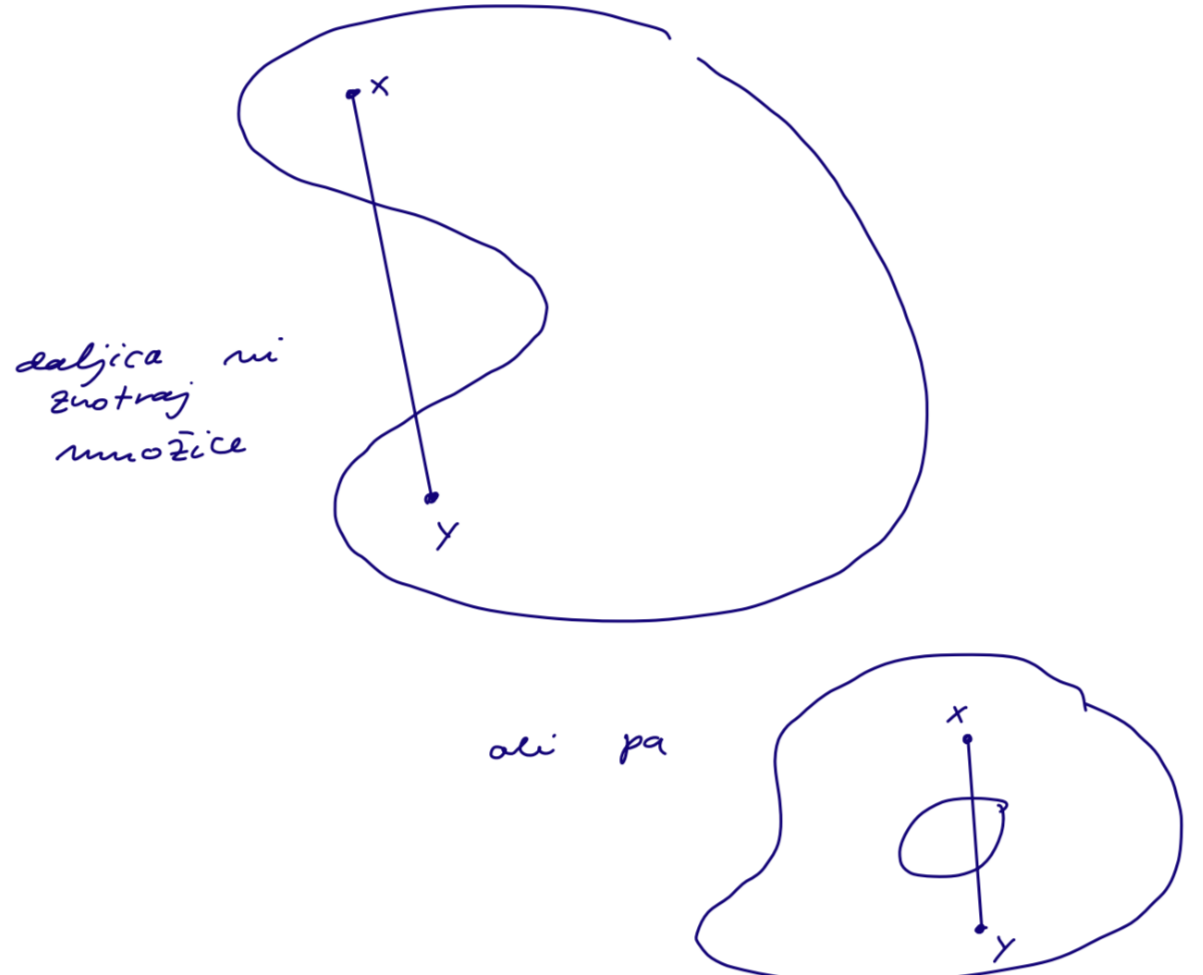 x
daljica ni
znotraj
množice
y
x
ali pa
y